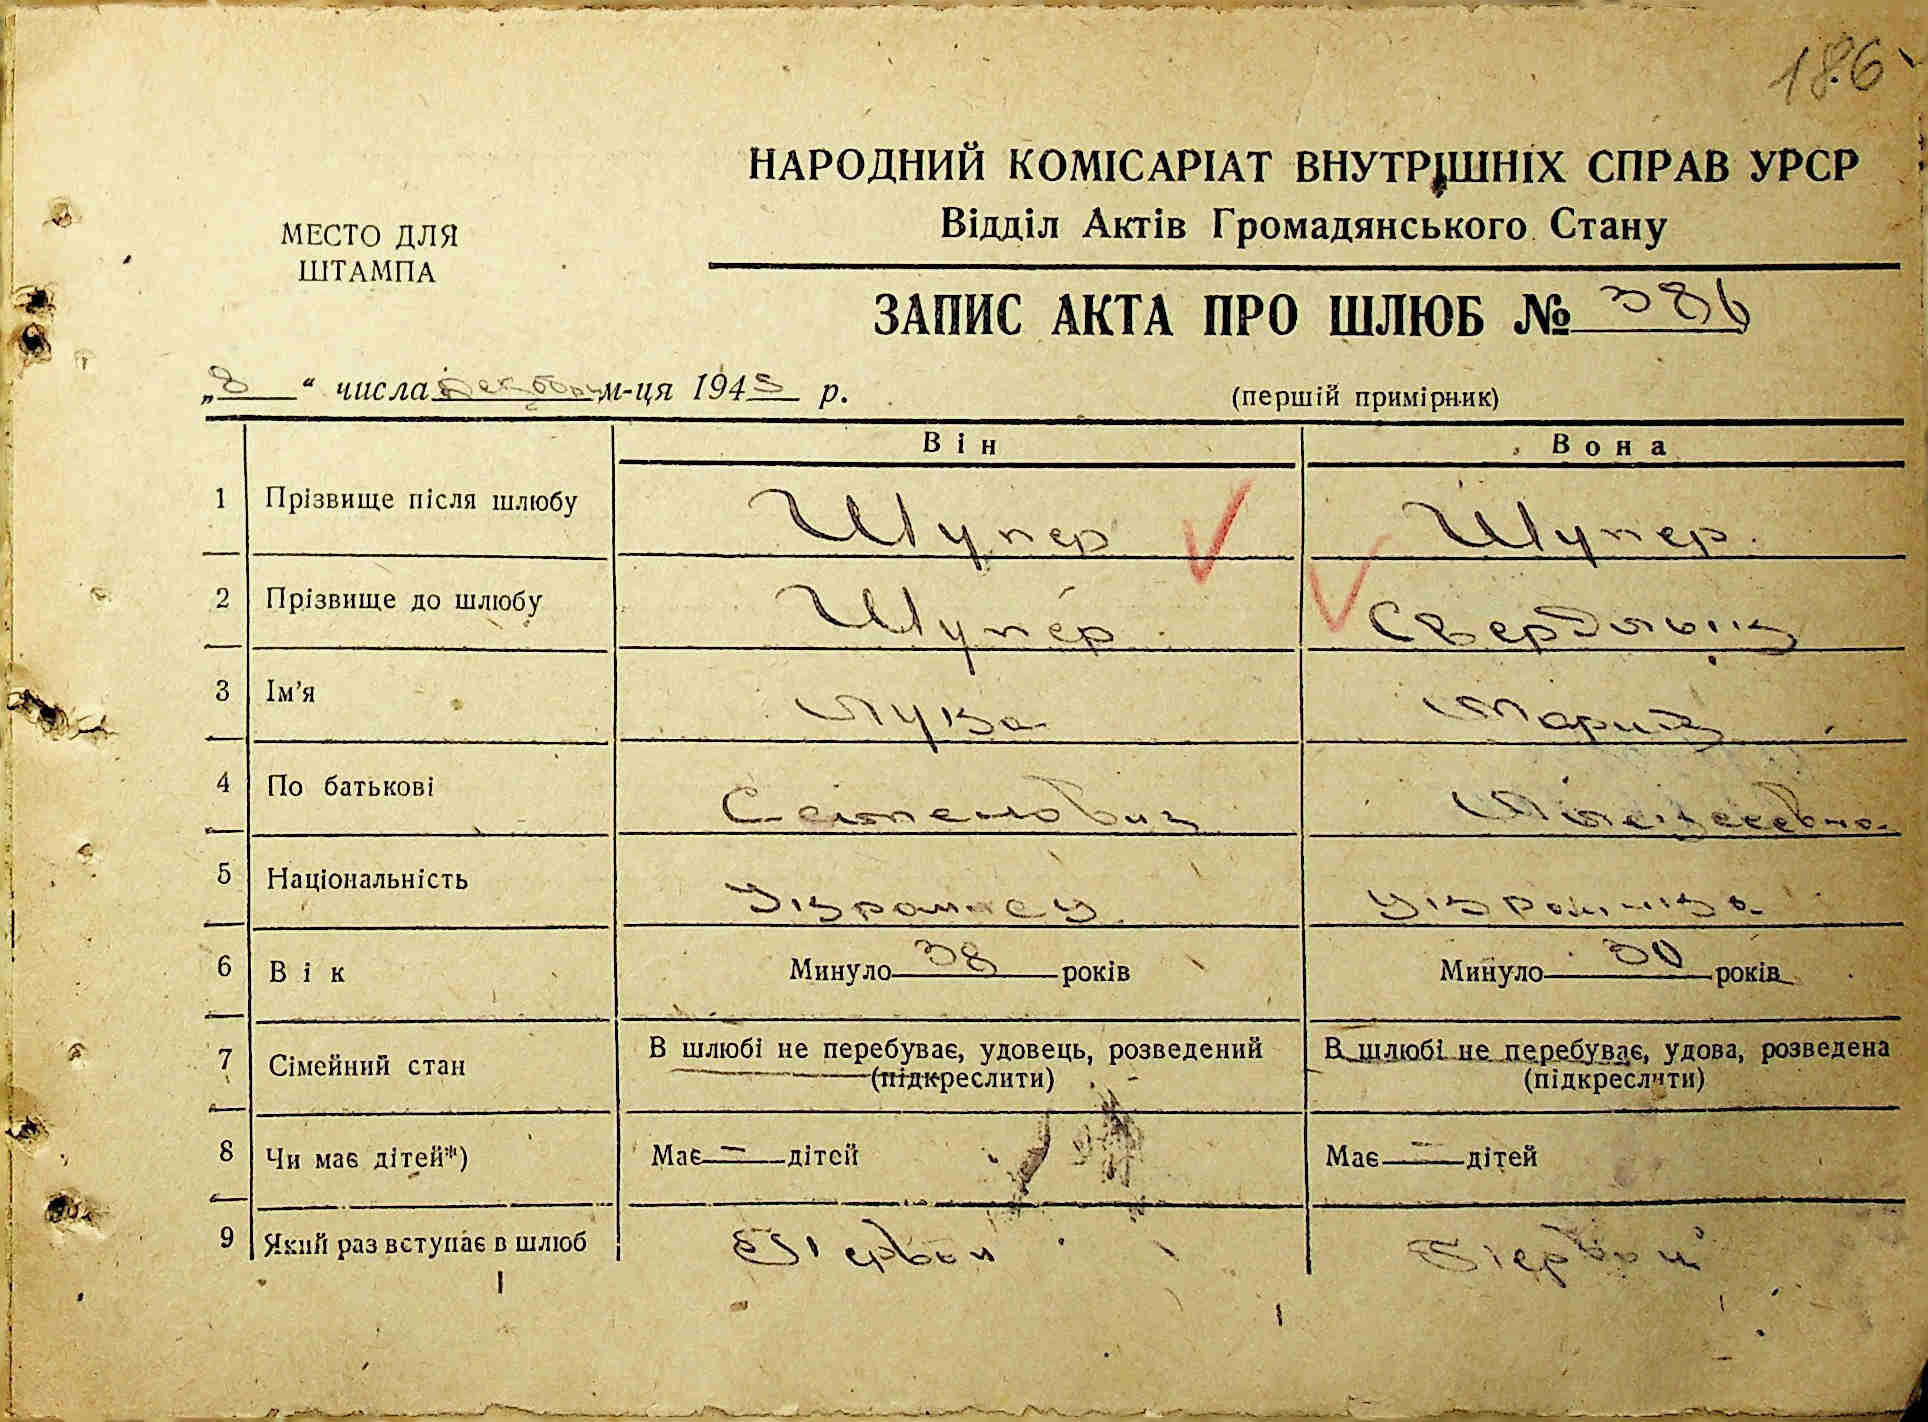 186
НАРОДНИЙ КОМІСАРІАТ ВНУТРІШНІХ СПРАВ УРСР
Відділ Актів Громадянського Стану
МЕСТО ДЛЯ
ШТАМПА
ЗАПИС АКТА ПРО ШЛЮБ № 386
„8“ числа декабря м-ця 1945 р.
(першій примірник)
Він Вона
1 Прізвище після шлюбу Шупер Шупер
2 Прізвище до шлюбу Шупер
3 Ім'я Лука Мария
4 По батькові Семенович
5 Національність Украинец Украинка
6 Вік Минуло 38 років Минуло 30 років
7 Сімейний стан В шлюбі не перебуває, удовець, розведений В шлюбі не перебуває, удова, розведена
(підкреслити) (підкреслити)
8 Чи має дітей*) Має — дітей Має — дітей
9 Який раз вступає в шлюб Первый Первый